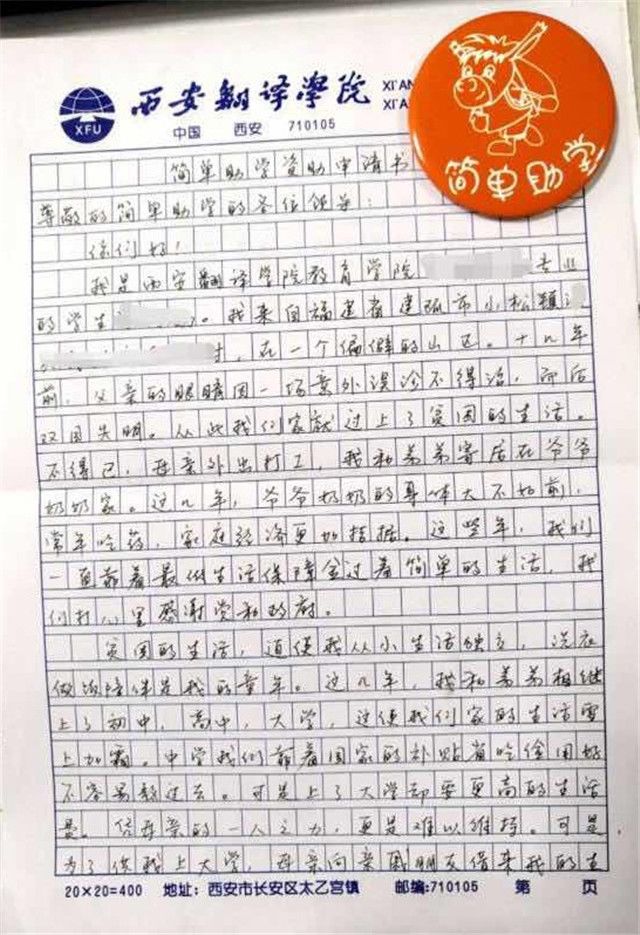 西安翻译学院
XI'AN
XI'A
XFU
中国 西安 710105
简单助学
简单助学资助申请书
尊敬的简单助学的各位领导：
你们好！
我是西安翻译学院教育学院 专业
的学生 。我来自福建省建瓯市小松镇
村，在一个偏僻的山区。十几年
前，父亲的眼睛因一场意外误诊不得治，而后
双目失明。从此我们家就过上了贫困的生活。
不得已，母亲外出打工，我和弟弟寄居在爷爷
奶奶家。这几年，爷爷奶奶的身体大不如前，
常年吃药，家庭经济更加拮据。这些年，我们
一直靠着最低生活保障金过着简单的生活，我
们打心里感谢党和政府。
贫困的生活，迫使我从小生活独立，洗衣
做饭陪伴是我的童年。这几年，我和弟弟相继
上了初中，高中，大学，这使我们家的生活雪
上加霜。中学我们靠着国家的补贴省吃俭用好
不容易熬过去。可是上了大学却要更高的生活
费。信母亲的一人之力，更是难以维持。可是
为了供我上大学，母亲向亲戚朋友借来我的生
20×20=400 地址：西安市长安区太乙宫镇 邮编:710105 第 页